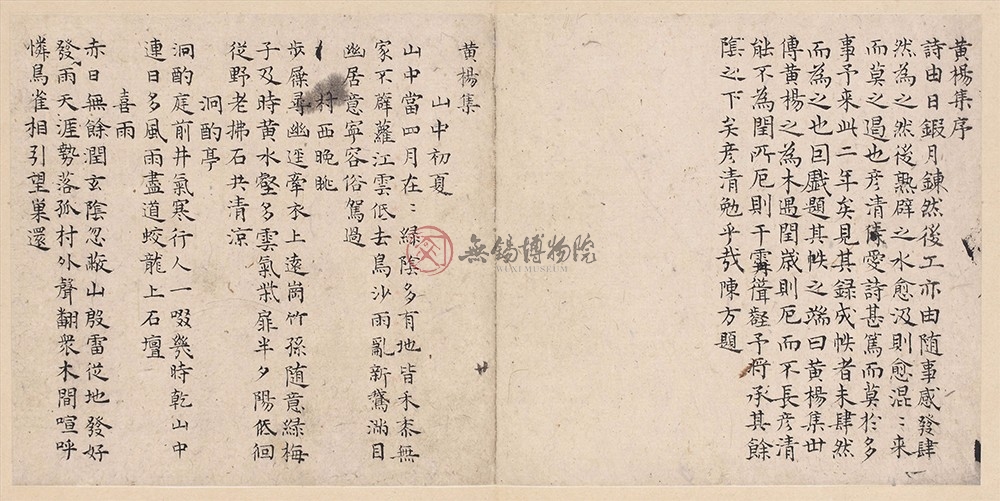 黄楊集序
詩由日鍜月鍊然後工亦由随事感發肆
然為之然後熟辟之水愈汲則愈混〻来
而莫之遏也彦清愛詩甚篤而莫於多
事予来此二年矣見其録成帙者未肆然
而為之也因戲題其帙之端曰黄楊集世
傳黄楊之為木遇閏歳則厄而不長彦清
能不為閏所厄則干霄聳壑予将承其餘
陰之下矣彦清勉乎哉陳方題
黄楊集
山中初夏
山中當四月在〻緑陰多有地皆禾黍無
家不薜蘿江雲低去鳥沙雨亂新鵞滿目
幽居意寧容俗駕過
村西晚眺
步屧尋幽逕牽衣上遠崗竹孫随意緑梅
子及時黄水壑多雲氣柴扉半夕陽低佪
従野老拂石共清凉
洞酌亭
洞酌庭前井氣寒行人一啜幾時乾山中
連日多風雨盡道蛟龍上石壇
喜雨
赤日無餘潤玄陰忽蔽山殷雷従地發好
雨天涯勢落孤村外聲翻衆木間喧呼
憐鳥雀相引望巢還
無錫博物院
WUXI MUSEUM